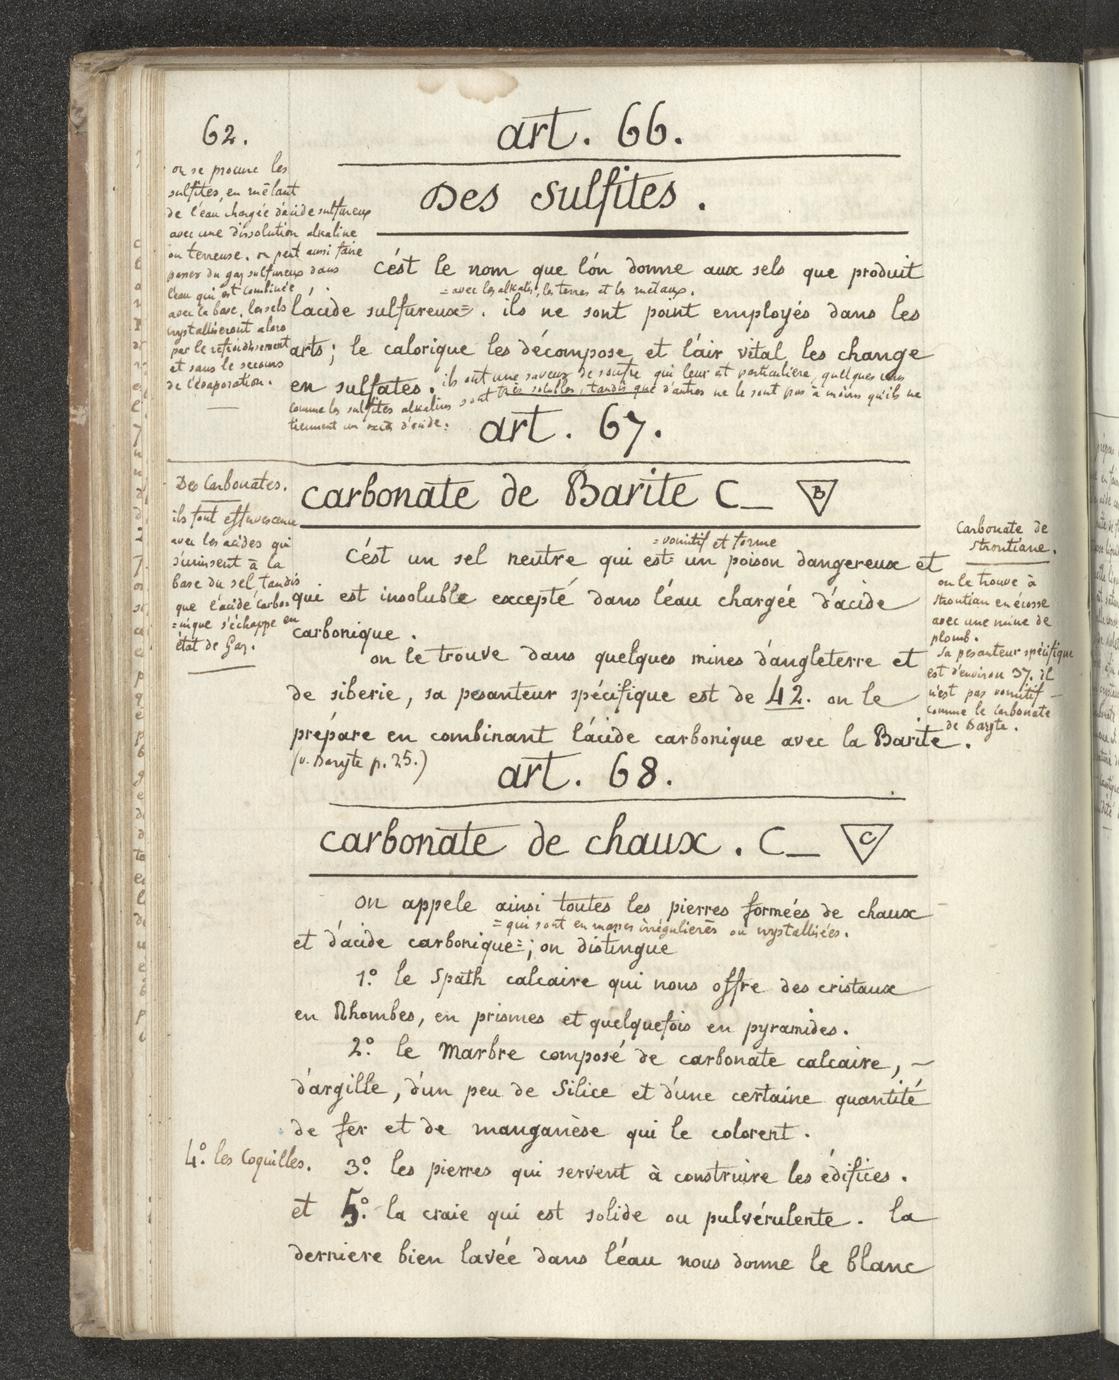 62.
on se procure les
sulfites, en mêlant
de l'eau chargée d'acide sulfureux
avec une dissolution alkaline
ou terreuse. on peut aussi faire
passer du gaz sulfureux dans
l'eau qui est combinée
avec la base, les sels
crystalliseront alors
par le refroidissement
et sans le secours
de l'évaporation.
art. 66.
Des sulfites.
c'ést le nom que l'ón donne aux sels que produit
= avec les alkalis, les terres et les métaux.
l'acide sulfureux=. ils ne sont point employés dans les
arts; le calorique les décompose et l'air vital les change
en sulfates. ils ont une saveur de soufre qui leur est particulière, quelques uns
comme les sulfites alkalins sont très solubles, tandis que d'autres ne le sont pas à moins qu'ils ne
tiennent un excès d'acide.
art. 67.
carbonate de Barite C_ B
Des Carbonates.
ils font effervescence
avec les acides qui
s'unissent à la
base du sel tandis
que l'acide carbo-
=nique s'échappe en
état de Gaz.
= vomitif et forme
C'ést un sel neutre qui est= un poison dangereux et
qui est insoluble excepté dans l'éau chargée d'acide
carbonique.
on le trouve dans quelques mines d'angleterre et
de siberie, sa pesanteur spécifique est de 42. on le
prépare en combinant l'ácide carbonique avec la Barite.
(v. Baryte p. 25.)
Carbonate de
Strontiane.
on le trouve à
strontian en écosse
avec une mine de
plomb.
Sa pesanteur spécifique
est d'environ 37. il
n'est pas vomitif
comme le carbonate
de Baryte.
art. 68.
carbonate de chaux. C_ C
on appele ainsi toutes les pierres formées de chaux
= qui sont en masses irrégulieres ou crystallisées.
et d'acide carbonique=; on distingue
1º. le Spath calcaire qui nous offre des cristaux
en Rhombes, en prismes et quelquefois en pyramides.
2º. le Marbre composé de carbonate calcaire,
d'argille, d'un peu de Silice et d'une certaine quantité
de fer et de manganèse qui le colorent.
3º. les pierres qui servent à construire les édifices.
4º. les Coquilles.
et 5º. la craie qui est solide ou pulvérulente. la
derniere bien lavée dans l'éau nous donne le blanc